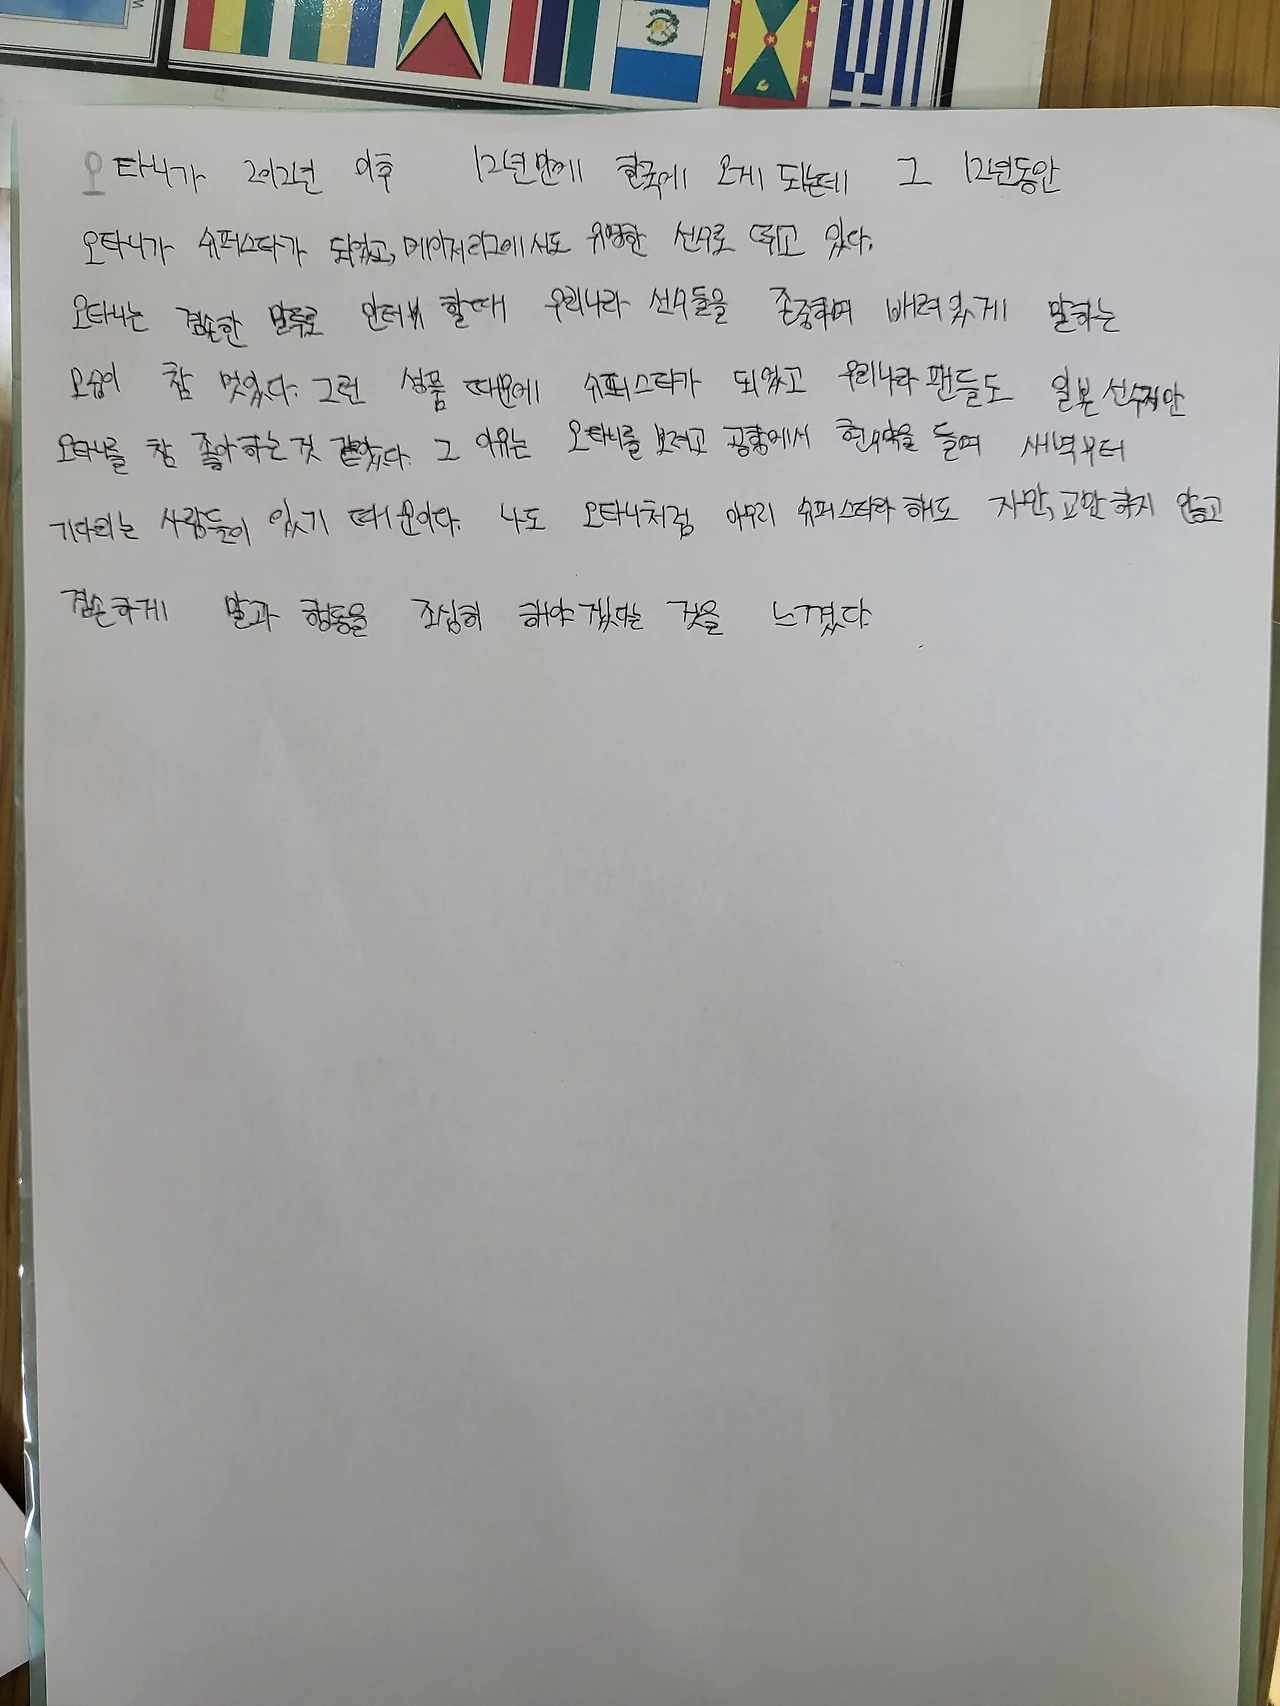 오타니가 2012년 이후 12년만에 한국에 오게 되는데 그 12년동안
오타니가 슈퍼스타가 되었고, 메이저리그에서도 유명한 선수로 뛰고 있다.
오타니는 겸손한 말투로 인터뷰 할때 우리나라 선수들을 존중하며 배려있게 말하는
모습이 참 멋있었다. 그런 성품 때문에 슈퍼스타가 되었고 우리나라 팬들도 일본 선수지만
오타니를 참 좋아하는 것 같았다. 그 이유는 오타니를 보려고 공항에서 현수막을 들며 새벽부터
기다리는 사람들이 있기 때문이다. 나도 오타니처럼 아무리 슈퍼스타라 해도 자만, 교만하지 않고
겸손하게 말과 행동을 조심히 해야겠다는 것을 느꼈다.